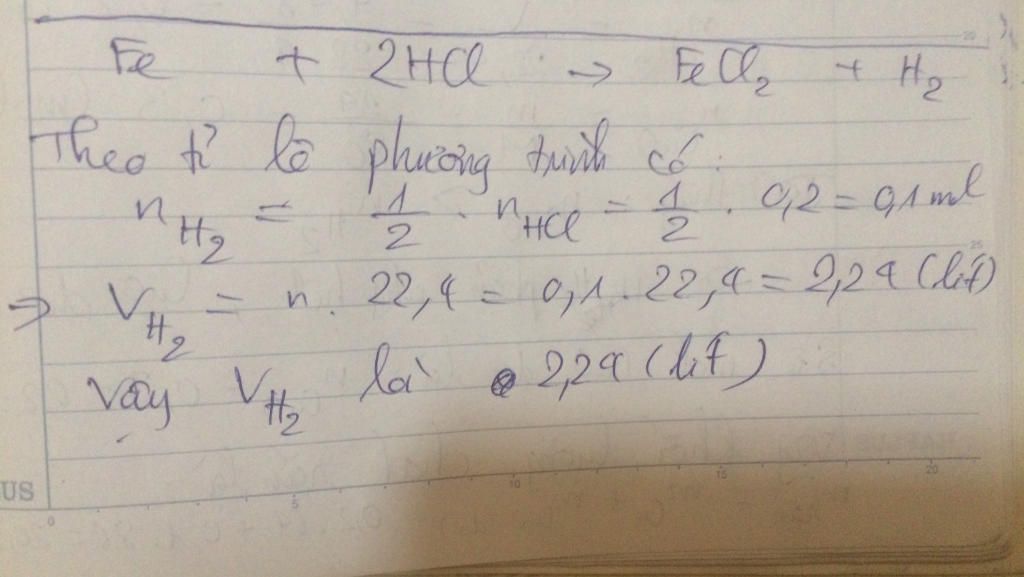 Fe + 2HCl → FeCl₂ + H₂
Theo tỉ lệ phương trình có:
n_H₂ = 1/2 . n_HCl = 1/2 . 0,2 = 0,1 ml
⇒ V_H₂ = n . 22,4 = 0,1 . 22,4 = 2,24 (lít)
Vậy V_H₂ là 2,24 (lít)
US
0 5 10 15 20
20
25